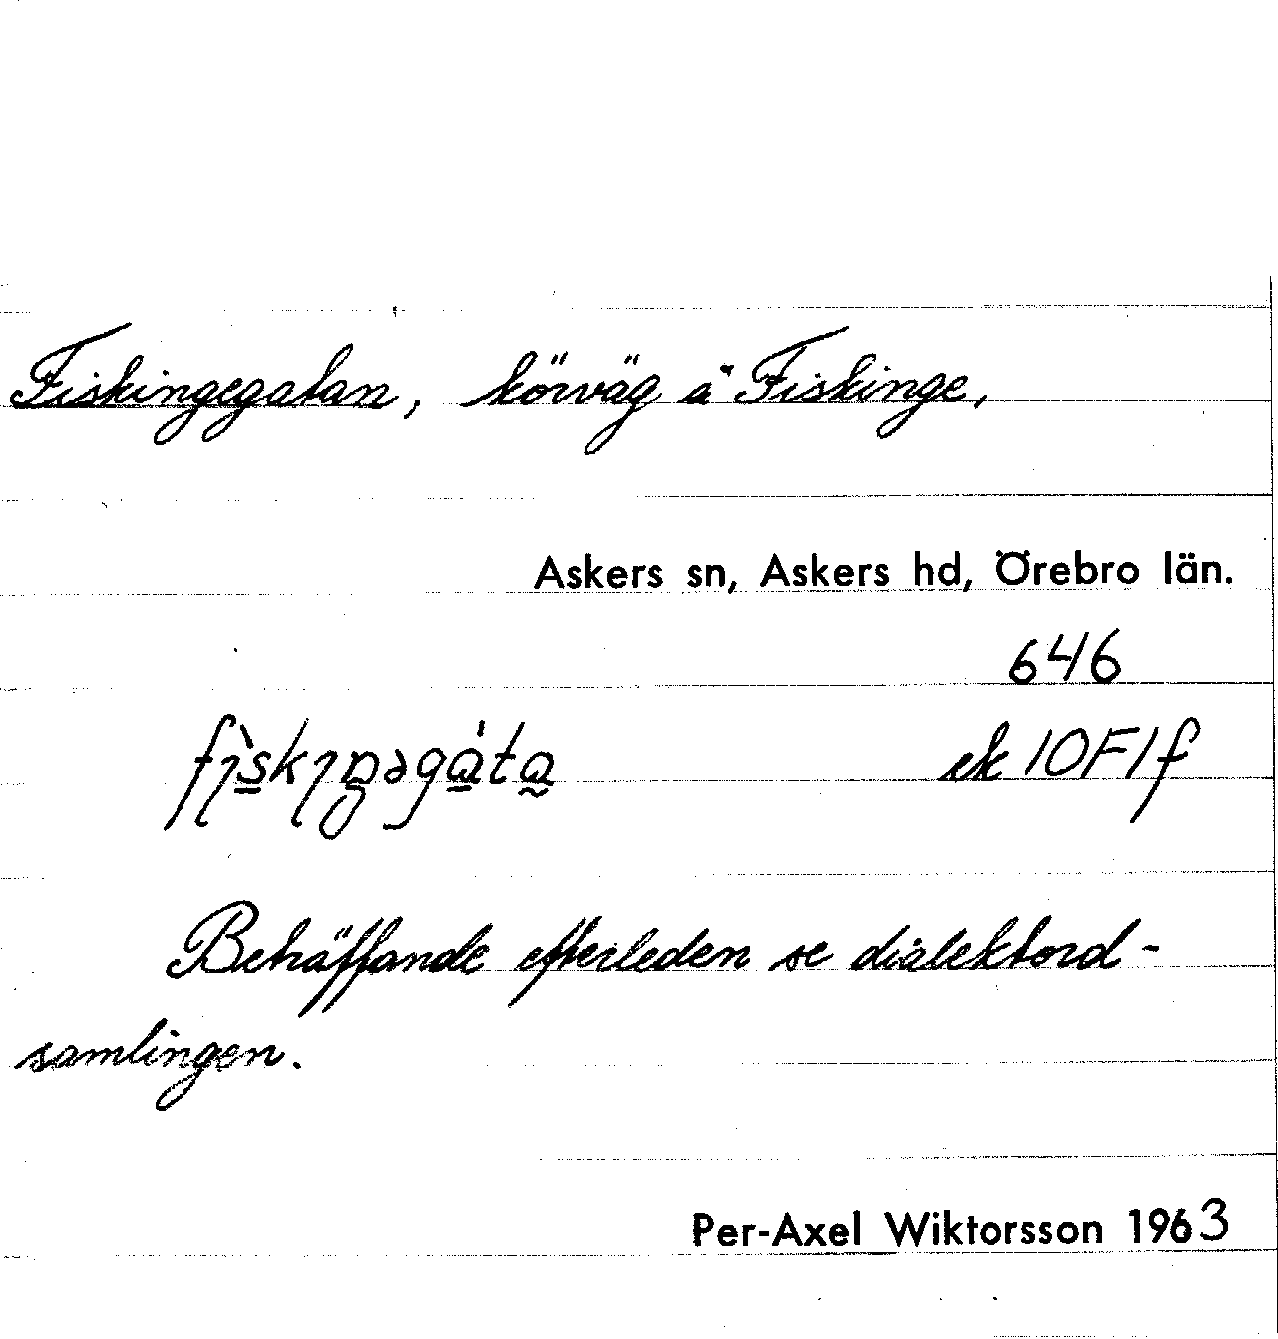 Fiskingegatan, körväg å Fiskinge,
Askers sn, Askers hd, Örebro län.
646
ek 10F1f
Beträffande efterleden se dialektord-
samlingen.
Per-Axel Wiktorsson 1963